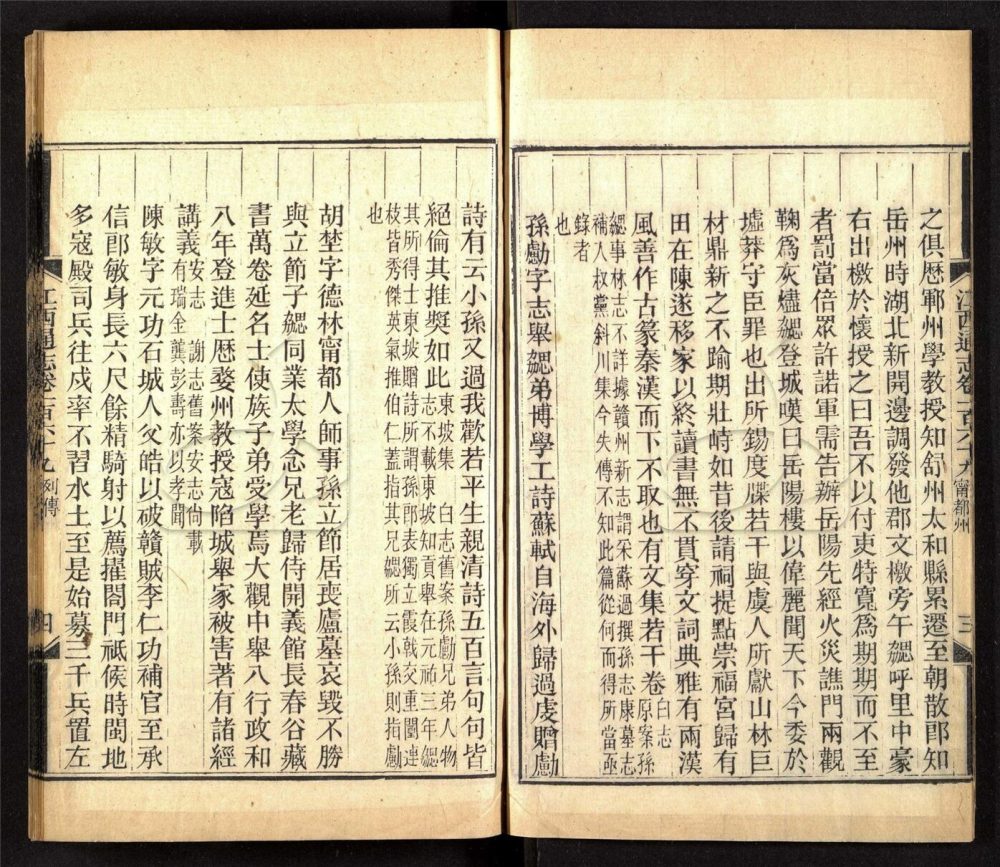 之俱歴鄆州學教授知舒州太和縣累遷至朝散郎知
岳州時湖北新開邊調發他郡文檄旁午勰呼里中豪
右出檄於懷授之曰吾不以付吏特寬爲期期而不至
者罰當倍眾許諾軍需告辦岳陽先經火災譙門兩觀
鞠爲灰燼勰登城嘆曰岳陽樓以偉麗聞天下今委於
墟莽守臣罪也出所錫度牒若干與虞人所獻山林巨
材鼎新之不踰期壯峙如昔後請祠提點崇福宮歸有
田在陳遂移家以終讀書無不貫穿文詞典雅有兩漢
風善作古篆秦漢而下不取也有文集若干卷白志
原案孫
勰事林志不詳據贛州新志謂采蘇過撰孫志康墓志
補入叔黨斜川集今失傳不知此篇從何而得所當亟
錄者
也
孫勴字志舉勰弟博學工詩蘇軾自海外歸過虔贈勴
江西通志卷一百六十九 甯都州
三
詩有云小孫又過我歡若平生親清詩五百言句句皆
絕倫其推奬如此白志舊案孫勴兄弟人物
東坡集志不載東坡知貢舉在元祐三年勰
其所得士東坡贈詩所謂孫郎表獨立霞戟交重闉連
枝皆秀傑英氣推伯仁蓋指其兄勰所云小孫則指勴
也
胡埜字德林甯都人師事孫立節居喪廬墓哀毀不勝
與立節子勰同業太學念兄老歸侍開義館長春谷藏
書萬卷延名士使族子弟受學焉大觀中舉八行政和
八年登進士歴婺州教授寇陷城舉家被害著有諸經
講義安志 謝志舊案安志尙載
有瑞金龔彭壽亦以孝聞
陳敏字元功石城人父皓以破贛賊李仁功補官至承
信郎敏身長六尺餘精騎射以薦擢閤門祗候時閩地
多寇殿司兵往戍率不習水土至是始募三千兵置左
江西通志卷一百六十九 列傳
四